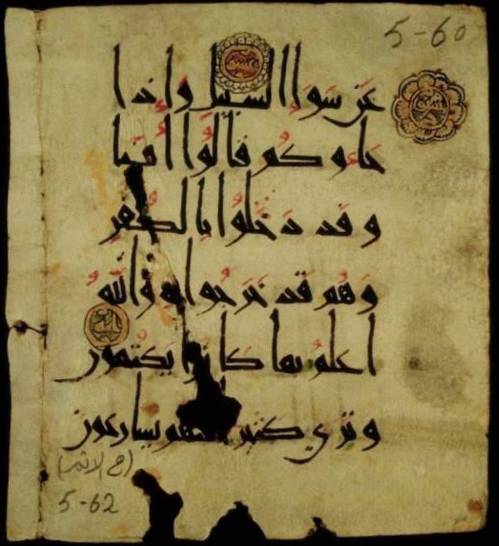 5-60
عَن سَوَاءِ السبيل وَإِذا
جَاءُوكُم قَالُوا أمنا
وَقَد دَخَلُوا بِالكُفرِ
وَهُم قَد خَرَجُوا بِه وَاللّهُ
اعلم بما كانوا يَكتُمُون
وترى كثيرا منهم يسارعون
(في الاثم)
5-62